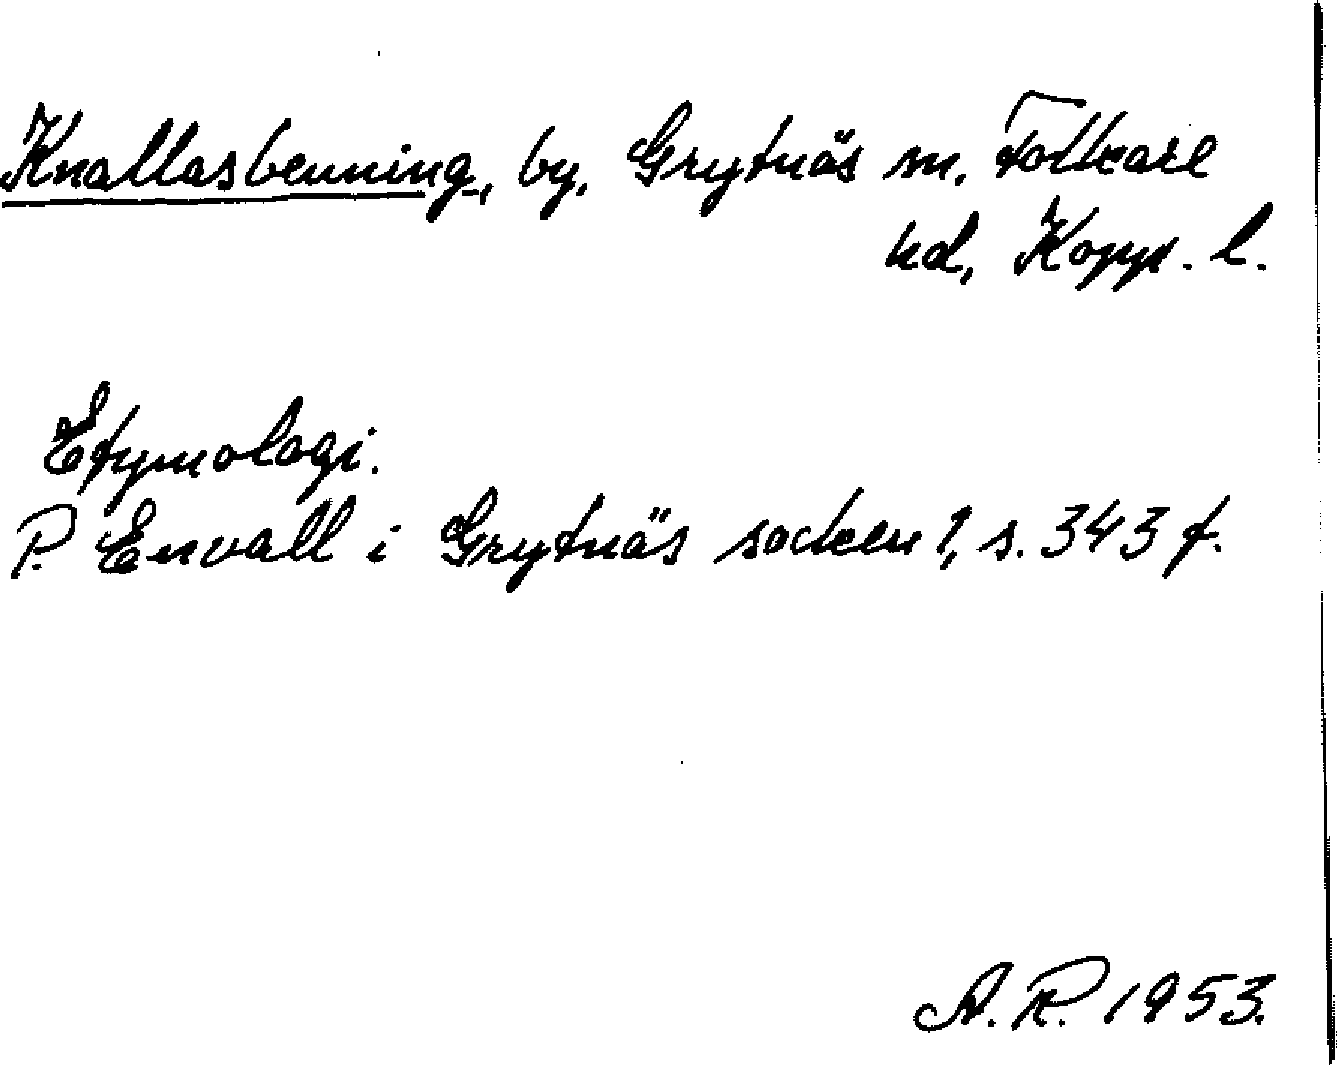 Knallasbenning, by, Grytnäs sn, Folkare
hd, Kopp. l.
Etymologi.
P. Envall i Grytnäs socken 1, s. 343 f.
A. R. 1953.